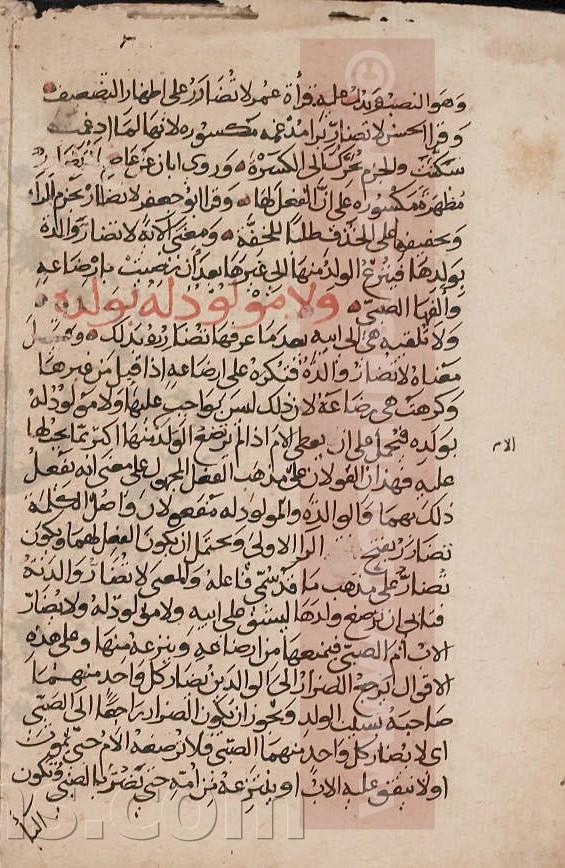 وهو النصب يدل عليه قرأة عمر لا تضارر على اظهار التضعيف
وقرا الحسن لا تضار برا مدغمه مكسوره لانها لما ادغمت
سكنت والجزم تحرك الى الكسرة وروى ابان عن عاصم لا تضارر
مظهرة مكسوره على ان الفعل لها وقرا ابو جعفر لا تضار بجزم الرا
وتخفيفها على الحذف طلبا للخفة ومعنى الاية لا تضار والدة
بولدها فينزع الولد منها الى غيرها بعد ان رضيت بارضاعه
والفها الصبي ولا مولود له بولده
ولا تلقيه هي الى ابيه بعد ما عرفها تضاره بذلك وقيل
معناه لا تضار والدة فتكره على ارضاعه اذا قبل من غيرها
وكرهت هي رضاعة لان ذلك ليس بواجب عليها ولا مولود له
بولده فيحمل على ان يعطى الام اذا لم يرضع الولد منها اكثر مما يجب لها
الام
عليه فهذان القولان على مذهب الفعل المجهول على معنى انه يفعل
ذلك بهما والوالدة والمولود له مفعولان واصل الكلمة
تضارر بفتح الرا الاولى ويحتمل ان يكون الفعل لهما ويكون
تضار على مذهب ما قد سمي فاعله والمعنى لا تضار والدة
فتابى ان ترضع ولدها ليشق على ابيه ولا مولود له ولا يضار
الاب ام الصبي فيمنعها من ارضاعه وينزعه منها وعلى هذه
الاقوال يرجع الضرار الى الوالدين يضار كل واحد منهما
صاحبه بسبب الولد ويجوز ان يكون الضرار راجعا الى الصبي
اى لا يضار كل واحد منهما الصبي فلا ترضعه الام حتى يموت
او لا ينفق عليه الاب او ينتزعه من امه حتى تضر بالصبي وتكون
البا